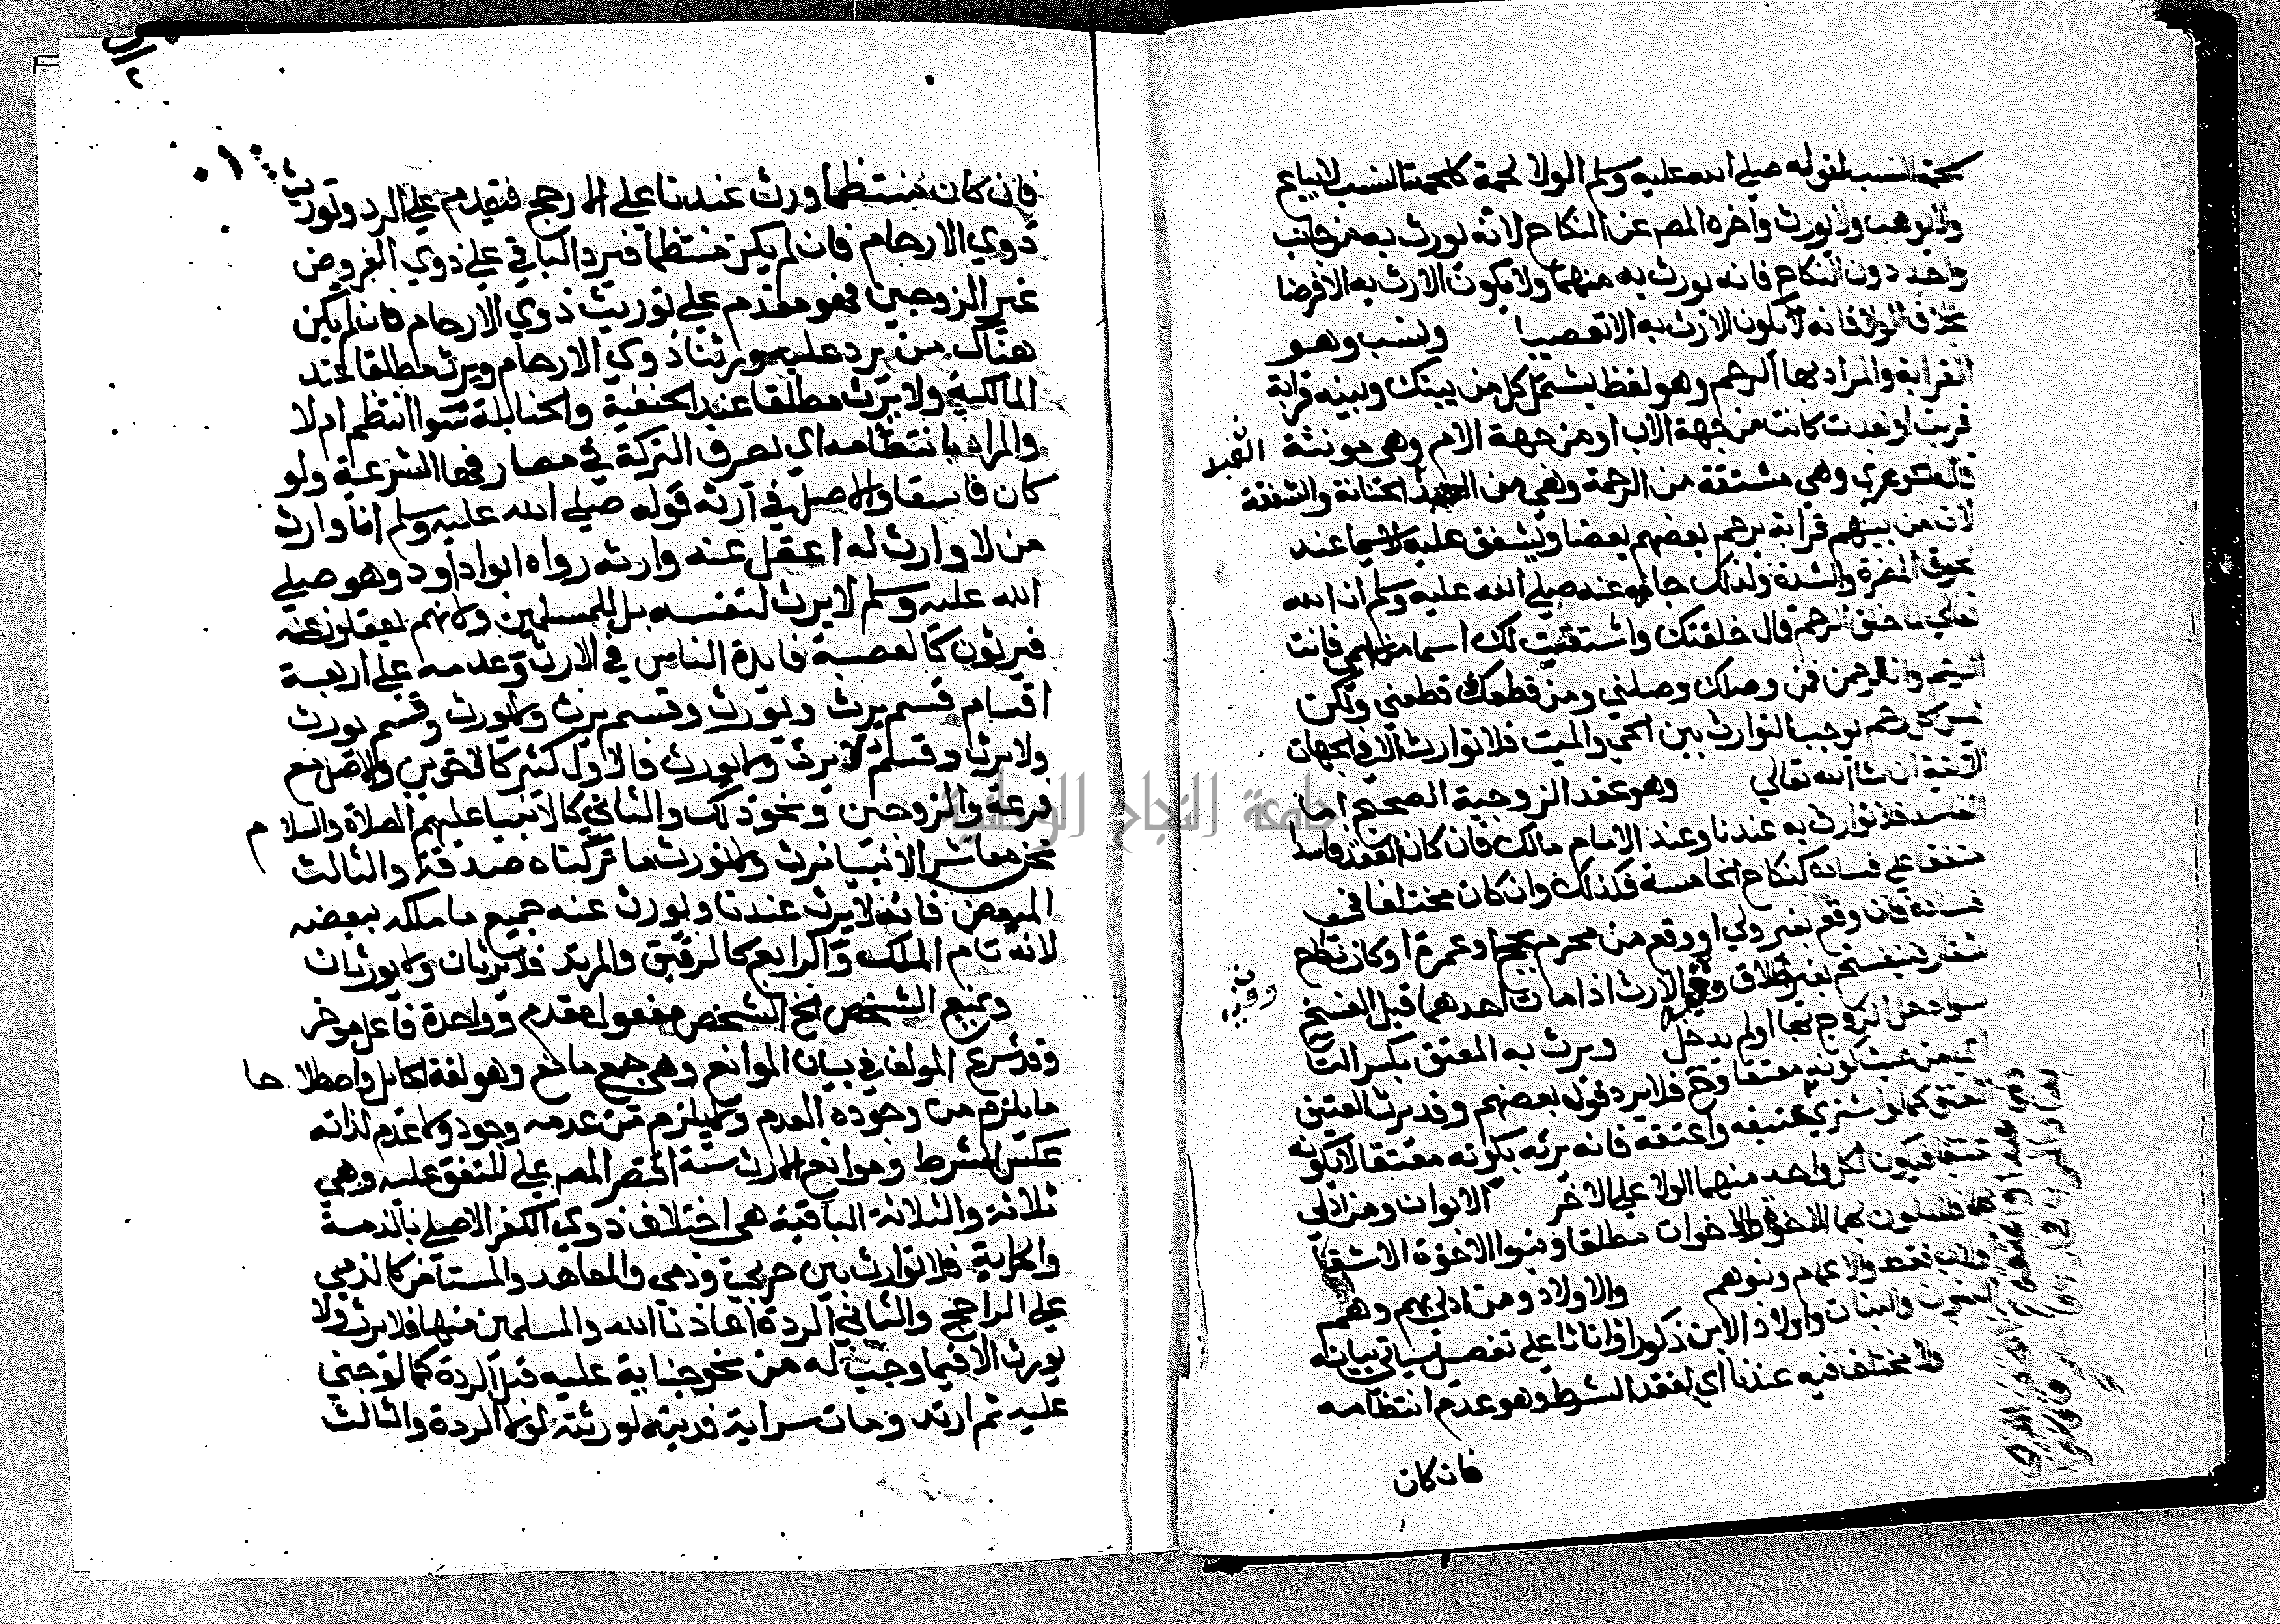 كلحمة النسب لقوله صلي الله عليه وسلم الولا لحمة كلحمة النسب لا يباع
ولا يوهب ولا يورث واخره المصر عن النكاح لانه يورث به من جانب
واحد دون النكاح فانه يورث به منهما ولا يكون الارث به الا فرضا
بخلاف الولا فانه لا يكون الارث به الا تعصيبا ونسب وهو
القرابة والمراد بها الرحم وهو لفظ يشتمل كل من بينك وبينه قرابة
قربت او بعدت كانت من جهة الاب او من جهة الام وهي مونثة
وهي مشتقة من الرحمة وهي من الحنانة والشفقة
لان من بينهم قرابة يرحم بعضهم بعضا ويشفق عليه لا سيما عند
المضرة والشدة ولذلك جا عنه صلي الله عليه وسلم ان الله
تعالي لما خلق الرحم قال خلقتك واشتققت لك اسما من اسمي فانت
الرحم وانا الرحمن فمن وصلك وصلني ومن قطعك قطعني ولكن
ليس كل رحم يوجب التوارث بين الحي والميت فلا توارث الا في الجهات
الاتية ان شا الله تعالي وهو عقد الزوجية الصحيح اما
الفاسد فلا توارث به عندنا وعند الامام مالك فان كان العقد فاسدا
متفق علي فساده كنكاح الخامسة فكذلك وان كان مختلفا في
فساده فان وقع بغير ولي او وقع من محرم بحج او عمرة او كان نكاح
شغار فينفسخ بغير طلاق وفيه الارث اذا مات احدهما قبل الفسخ
سوا دخل الزوج بها او لم يدخل ويرث به المعتق بكسر التا
اي من حيث كونه معتقا وح فلا يرد قول بعضهم وقد يرث العتيق
المعتق كما لو اشتري عتيقه واعتقه فانه يرثه بكونه معتقا لا بكونه
عتيقا فيكون لكل واحد منهما الولا علي الاخر الابوان ومن ادلي
بهما فيدلون بهما الاخوة والاخوات مطلقا وبنوا الاخوة الاشقا
ولاب فقط والاعمام وبنوهم والاولاد ومن ادلي بهم وهم
البنون والبنات واولاد الابن ذكورا واناثا علي تفصيل سياتي بيانه
ولا مختلف فيه عندنا اي لفقد الشرط وهو عدم انتظامه
فان كان
فان كان منتظما ورث عندنا علي الارجح فيقدم علي الرد وتوريث
ذوي الارحام فان لم يكن منتظما فيرد الباقي علي ذوي الفروض
غير الزوجين فهو مقدم علي توريث ذوي الارحام فان لم يكن
هناك من يرد عليه ورثنا ذوي الارحام ويرث مطلقا عند
المالكية ولا يرث مطلقا عند الحنفية والحنابلة سوا انتظم ام لا
والمراد بانتظامه اي يصرف التركة في مصارفها الشرعية ولو
كان فاسقا والاصل في ارثه قوله صلي الله عليه وسلم انا وارث
من لا وارث له اعقل عنه وارثه رواه ابوا داود وهو صلي
الله عليه وسلم لا يرث لنفسه بل للمسلمين ولانهم يعقلون عنه
فيرثون كالعصبة فايدة الناس في الارث وعدمه علي اربعة
اقسام قسم يرث ويورث وقسم يرث ولا يورث وقسم يورث
ولا يرث وقسم لا يرث ولا يورث فالاول كثير كالاخوين والاصل مع
فرعه والزوجين ونحو ذلك والثاني كالانبيا عليهم الصلاة والسلام
نحن معاشر الانبيا نرث ولا نورث ما تركناه صدقة والثالث
المبعض فانه لا يرث عندنا ويورث عنه جميع ما ملكه ببعضه
لانه تام الملك والرابع كالرقيق والمرتد فلا يرثان ولا يورثان
ويمنع الشخص الخ الشخص مفعول مقدم وواحدة فاعل موخر
وقد شرع المولف في بيان الموانع وهي جمع مانع وهو لغة الحايل واصطلاحا
ما يلزم من وجوده العدم ولا يلزم من عدمه وجود ولا عدم لذاته
عكس الشرط وموانع الارث ستة اقتصر المصر علي المتفق عليه وهي
ثلاثة والثلاثة الباقية هي اختلاف ذوي الكفر الاصلي بالذمة
والحرابة فلا توارث بين حربي وذمي والمعاهد والمستامن كالذمي
علي الراجح والثاني الردة اعاذنا الله والمسلمين منها فلا يرث ولا
يورث الا فيما وجب له من نحو جناية عليه قبل الردة كما لو جني
عليه ثم ارتد ومات سراية فديته لورثته لولا الردة والثالث